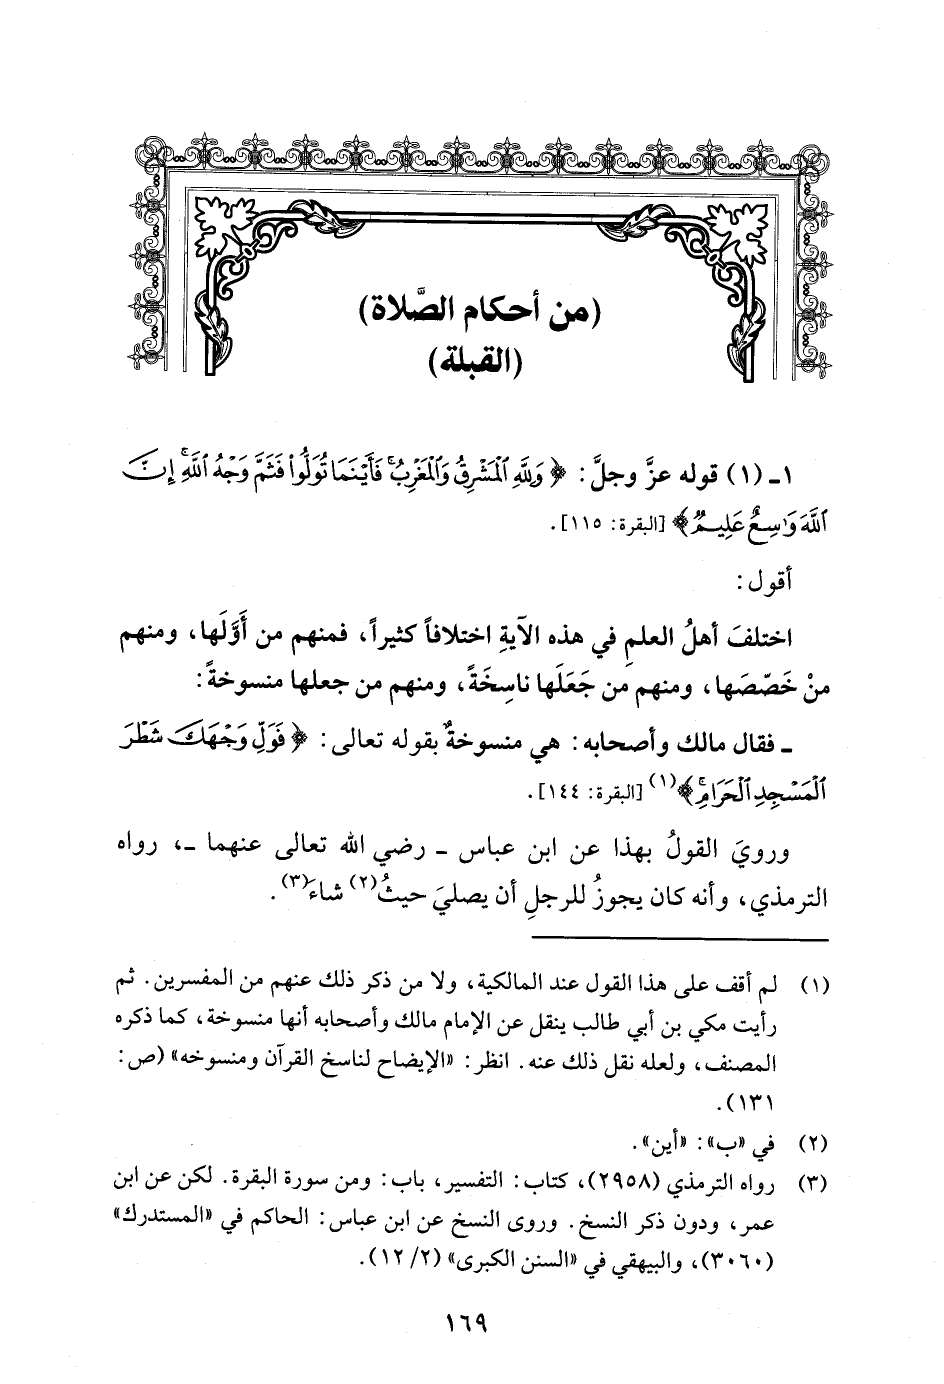 (من أحكام الصَّلاة)
(القبلة)
١ـ (١) قوله عزَّ وجلَّ: ﴿وَلِلَّهِ ٱلْمَشْرِقُ وَٱلْمَغْرِبُۚ فَأَيْنَمَا تُوَلُّوا۟ فَثَمَّ وَجْهُ ٱللَّهِۚ إِنَّ
ٱللَّهَ وَٰسِعٌ عَلِيمٌ﴾ [البقرة: ١١٥].
أقول:
اختلفَ أهلُ العلمِ في هذه الآيةِ اختلافاً كثيراً، فمنهم من أَوَّلَها، ومنهم
منْ خَصّصَها، ومنهم من جَعَلَها ناسِخَةً، ومنهم من جعلها منسوخةً:
ـ فقال مالك وأصحابه: هي منسوخةٌ بقوله تعالى: ﴿فَوَلِّ وَجْهَكَ شَطْرَ
ٱلْمَسْجِدِ ٱلْحَرَامِۚ﴾(١) [البقرة: ١٤٤].
ورويَ القولُ بهذا عن ابن عباس ـ رضي الله تعالى عنهما ـ، رواه
الترمذي، وأنه كان يجوزُ للرجلِ أن يصليَ حيثُ(٢) شاءَ(٣).
(١) لم أقف على هذا القول عند المالكية، ولا من ذكر ذلك عنهم من المفسرين. ثم
رأيت مكي بن أبي طالب ينقل عن الإمام مالك وأصحابه أنها منسوخة، كما ذكره
المصنف، ولعله نقل ذلك عنه. انظر: «الإيضاح لناسخ القرآن ومنسوخه» (ص:
١٣١).
(٢) في «ب»: «أين».
(٣) رواه الترمذي (٢٩٥٨)، كتاب: التفسير، باب: ومن سورة البقرة. لكن عن ابن
عمر، ودون ذكر النسخ. وروى النسخ عن ابن عباس: الحاكم في «المستدرك»
(٣٠٦٠)، والبيهقي في «السنن الكبرى» (٢/ ١٢).
١٦٩